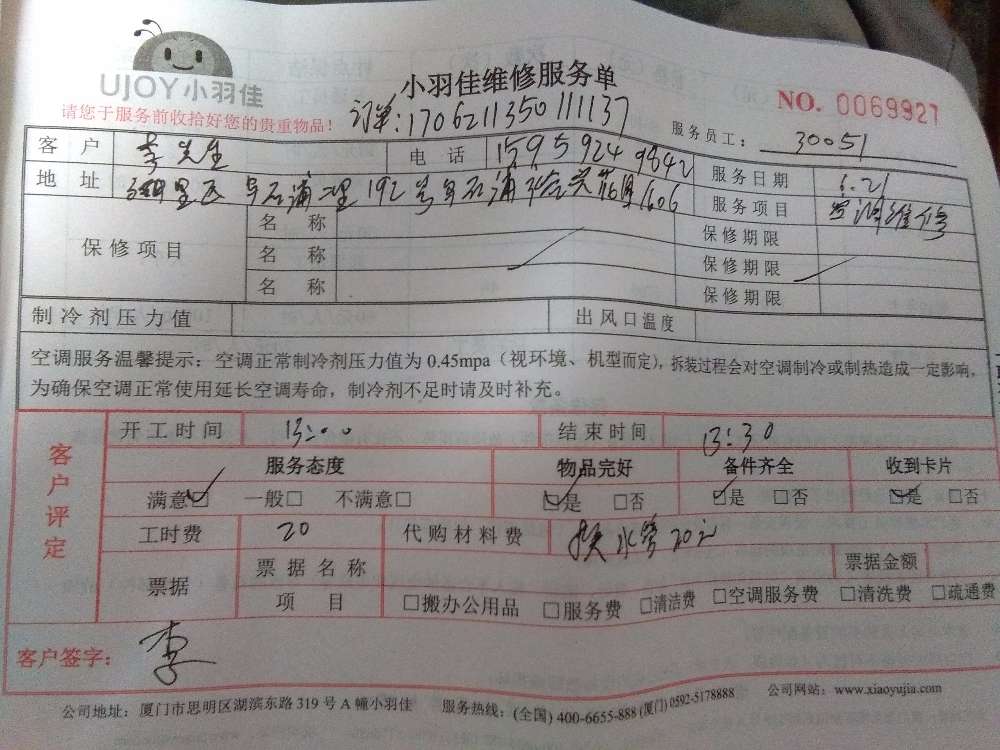 UJOY小羽佳
小羽佳维修服务单
NO. 0069927
请您于服务前收拾好您的贵重物品！
订单：1706211350111137
服务员工： 30051
客 户 李先生 电 话 15959249842 服务日期 6.21
地 址 湖里区 号 192号 1606 服务项目 空调维修
保修项目 名 称 保修期限
名 称 保修期限
名 称 保修期限
制冷剂压力值 出风口温度
空调服务温馨提示：空调正常制冷剂压力值为 0.45mpa（视环境、机型而定），拆装过程会对空调制冷或制热造成一定影响，
为确保空调正常使用延长空调寿命，制冷剂不足时请及时补充。
客户评定
开工时间 13:00 结束时间 13:30
服务态度 物品完好 备件齐全 收到卡片
满意☑ 一般□ 不满意□ ☑是 □否 ☑是 □否 ☑是 □否
工时费 20 代购材料费 换水管20元
票据 票据名称 票据金额
项 目 □搬办公用品 □服务费 □清洁费 □空调服务费 □清洗费 □疏通费
客户签字： 李
公司地址：厦门市思明区湖滨东路 319 号 A 幢小羽佳 服务热线：(全国) 400-6655-888 (厦门) 0592-5178888 公司网站：www.xiaoyujia.com